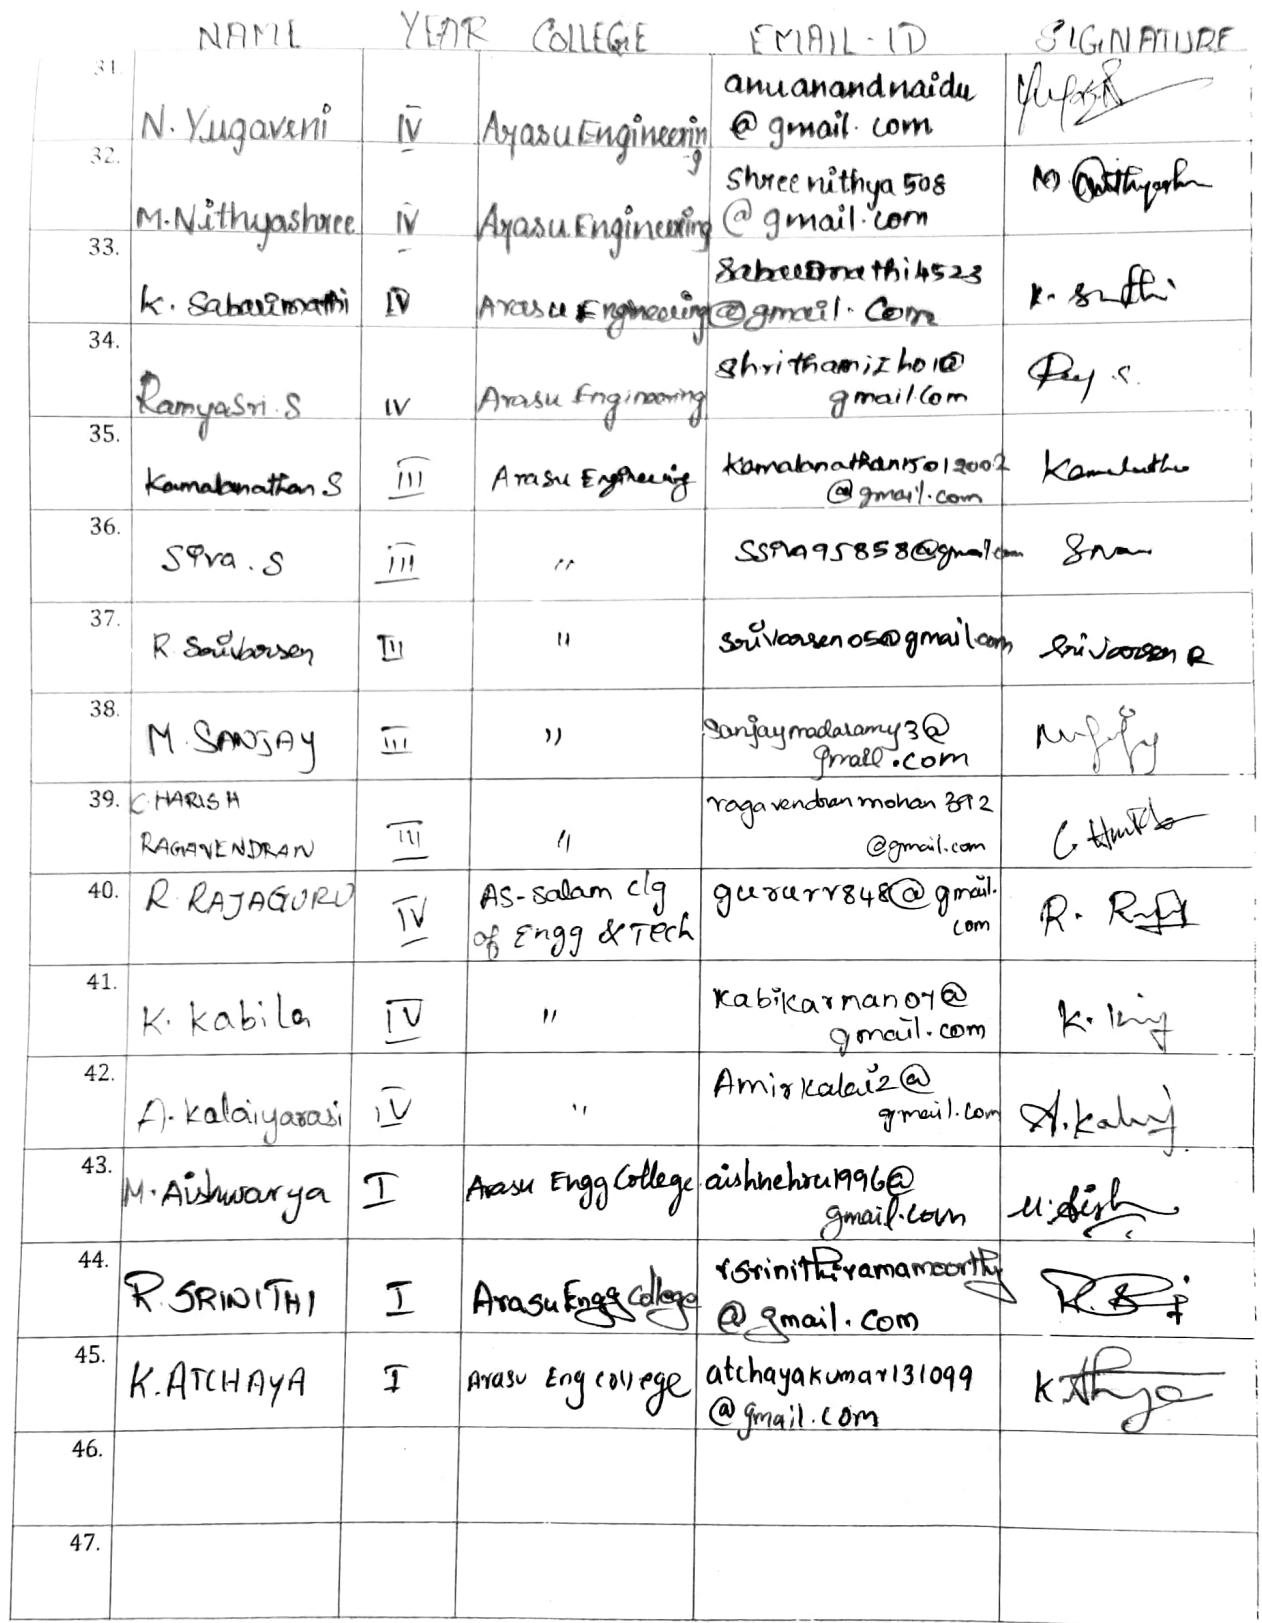 NAME YEAR COLLEGE EMAIL-ID SIGNATURE
31.
N. Yugaveni IV Arasu Engineering anuanandnaidu
@gmail.com
32.
M.Nithyashree IV Arasu Engineering shreenithya508
@gmail.com
33.
K. Sabarimathi IV Arasu Engineering
@gmail.com
34.
RamyaSri.S IV Arasu Engineering shrithamizh01@
gmail.com
35.
Kamalanathan S III Arasu Engineering kamalanathan15012002
@gmail.com
36.
Siva.S III " ssiva95858@gmail.com
37.
R. Srivarsen III " @gmail.com
38.
M. SANJAY III " Sanjaymadasamy3@
gmail.com
39. C HARISH
RAGAVENDRAN III " ragavendranmohan392
@gmail.com
40. R. RAJAGURU IV AS-salam clg
of Engg & Tech gururr848@gmail.
com
41.
K. Kabila IV " kabikarnan07@
gmail.com
42.
A. Kalaiyarasi IV " Amirkalai2@
gmail.com
43.
M. Aishwarya I Arasu Engg College aishnehru1996@
gmail.com
44.
R. SRINITHI I Arasu Engg College rsrinithiramamoorthy
@gmail.com
45.
K. ATCHAYA I Arasu Eng college atchayakumar131099
@gmail.com
46.
47.